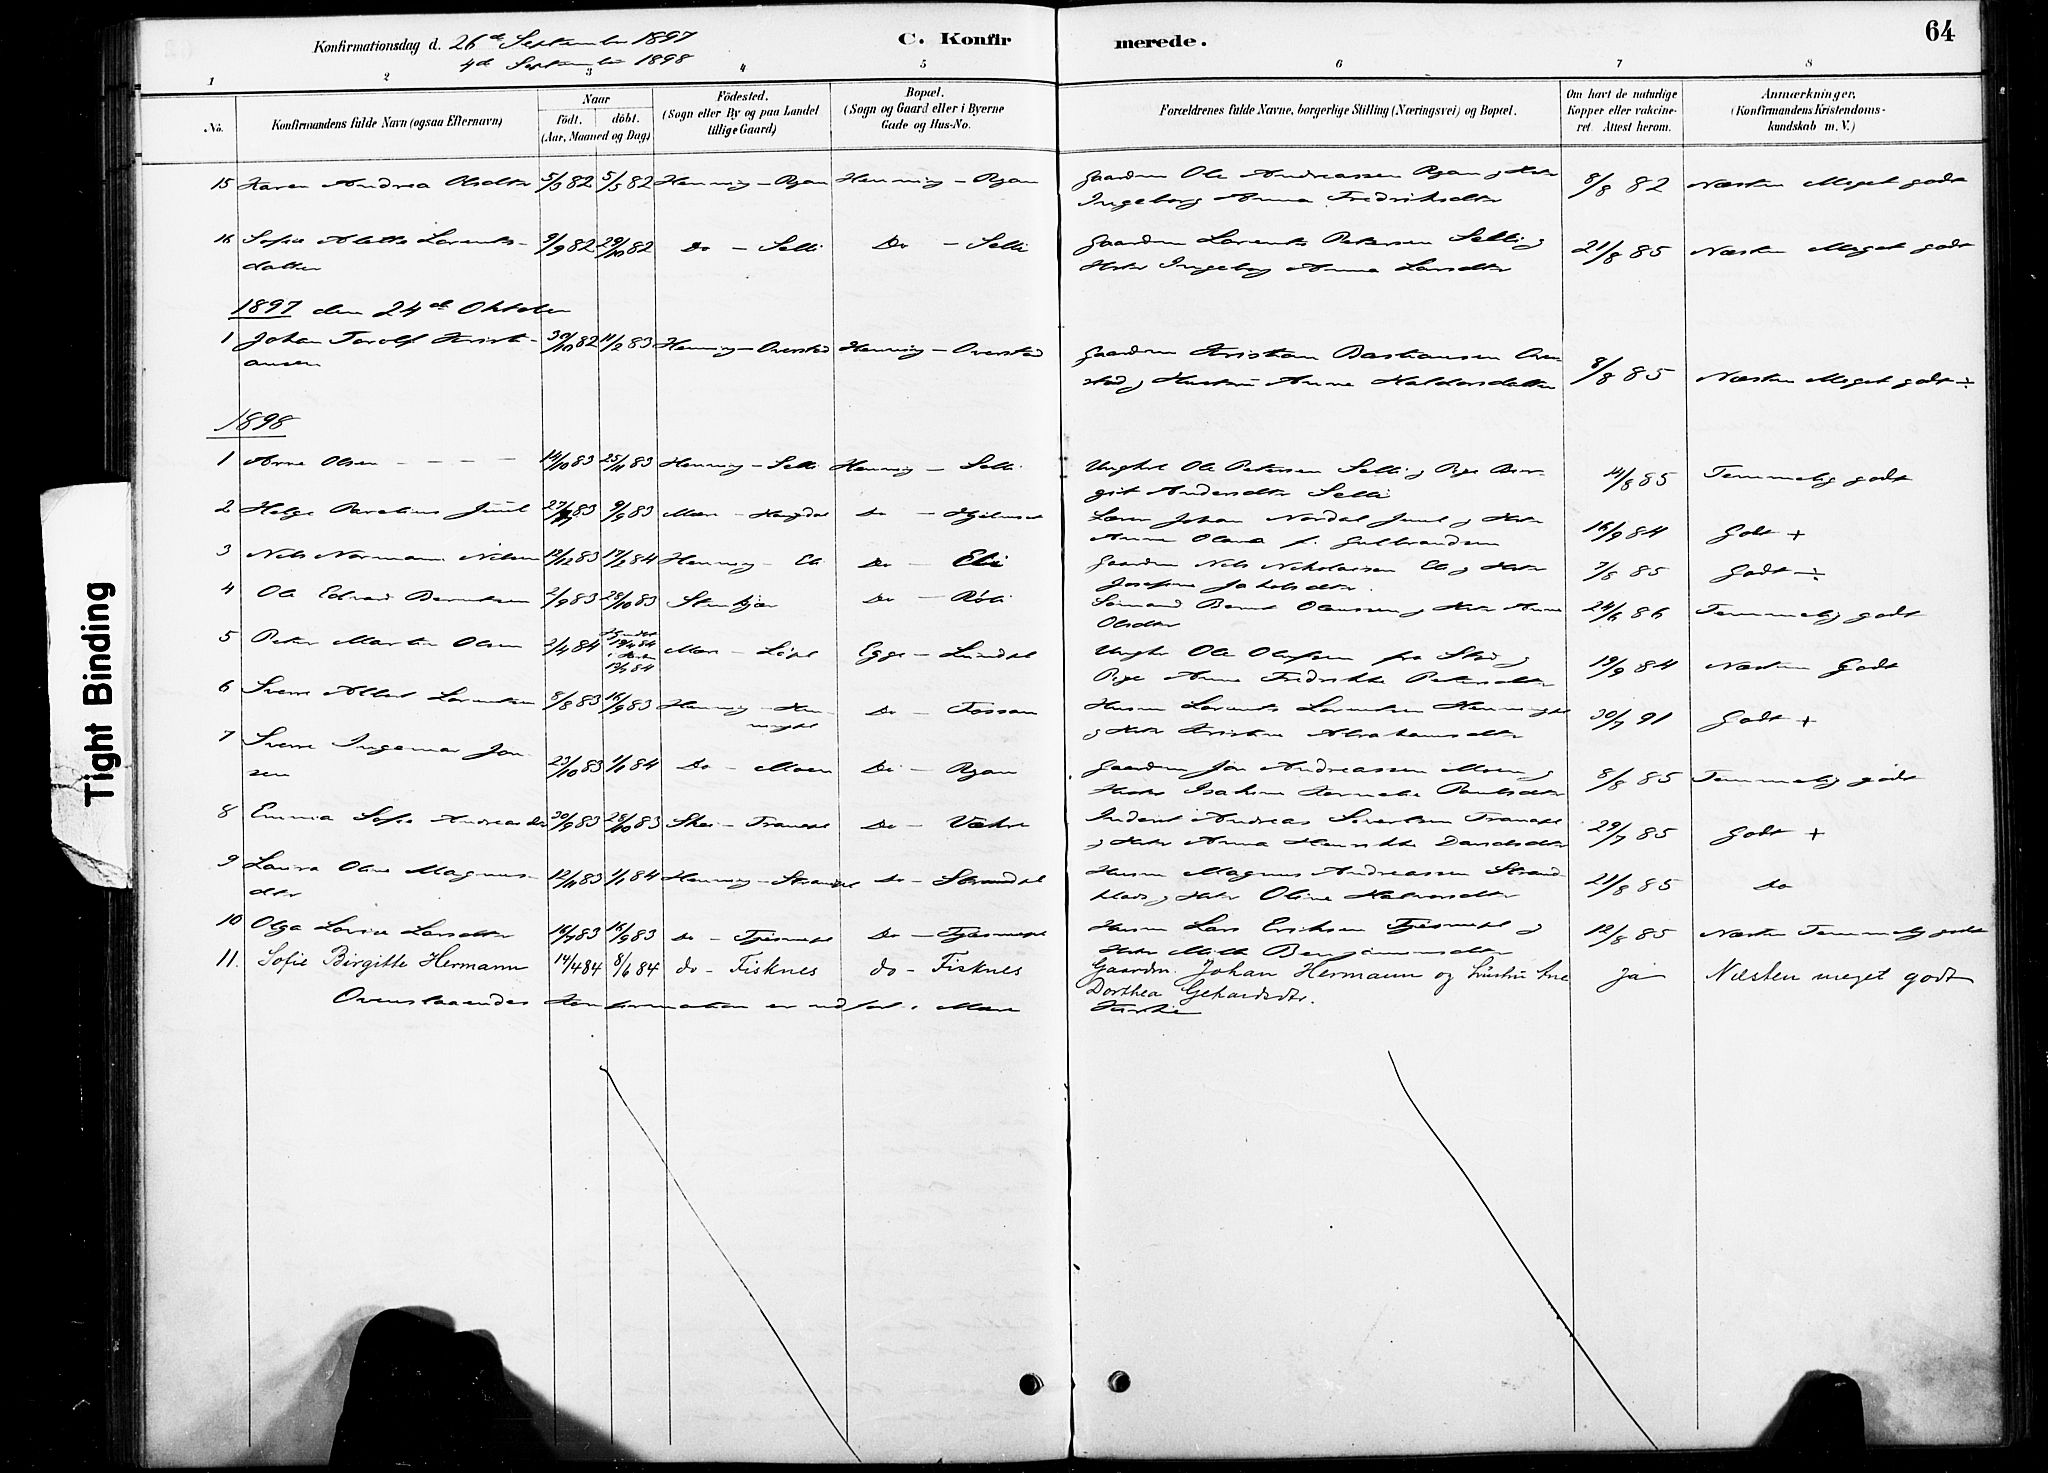 Konfirmationsdag d. 26de September 1897
4de September 1898
C. Konfirmerede.
64
1 2 3 4 5 6 7 8
No.
Konfirmandens fulde Navn (ogsaa Efternavn)
Naar
födt. döbt.
(Aar, Maaned og Dag)
Födested.
(Sogn eller By og paa Landet
tillige Gaard)
Bopæl.
(Sogn og Gaard eller i Byerne
Gade og Hus-No.
Forældrenes fulde Navne, borgerlige Stilling (Næringsvei) og Bopæl.
Om havt de naturlige
Kopper eller vakcine-
ret. Attest herom.
Anmærkninger,
(Konfirmandens Kristendoms-
kundskab m. V.)
15 Karen Andrea Olsdtr 5/3 82 5/5 82 Henning - Ryan Henning - Ryan Gaardm Ole Andreassen Ryan og Hstr 8/8 82 Næsten Meget godt
Ingeborg Anna Fredriksdtr
16 Sofie Alette Lorents- 9/9 82 29/10 82 Do - Selli Do - Selli Gaardm Lorents Petersen Selli og 21/8 85 Næsten Meget godt
datter Hstr Ingeborg Anna Larsdtr
1897 den 24de Oktober
1 Johan Torolf Kristi- 30/10 82 11/2 83 Henning - Overstad Henning - Overstad Gaardm Kristian Bastiansen Over-
ansen stad og Hustru Anne Haldorsdatter 8/8 85 Næsten Meget godt ÷
1898
1 Arne Olsen - - - - 14/10 83 25/11 83 Henning - Selli Henning - Selli Ungkl Ole Petersen Selli og Pige Ber-
git Andersdtr Selli 14/8 85 Temmelig godt
2 Helge Parelius Juul 27/7 83 9/9 83 Mære Do Lærer Johan Nordal Juul og Hstr
Anne Olava f. Gulbrandsen 16/9 84 Godt +
3 Nils Normann Nilsen 12/12 83 17/2 84 Henning - Eli Do - Elie Gaardm Nils Nikolaisen Eli og Hstr
Josefine Jakobsdtr. 7/8 85 Godt ÷
4 Ole Edvard Berntsen 2/9 83 28/10 83 Stenkjær Do Sömand Bernt Olaussen og Hstr Anne
Olsdtr 24/6 86 Temmelig godt
5 Peter Martin Olsen 2/4 84 Mære Egge Ungkl Ole Olufsen fra Stod og
Pige Anne Fredrikke Petersdtr 19/9 84 Næsten Godt
6 Sverre Albert Lorentsen 8/8 83 16/9 83 Henning - Hen- Do - Fossan Husm Lorents Lorentsen
og Hstr Kristine Abrahamsdtr 30/7 91 Godt +
7 Sverre Ingemar Jon-
sen 23/10 83 1/1 84 Do - Moen Do - Ryan Gaardm Jon Andreassen Moen og
Hstr Isakine Kornelie Paulsdtr 8/8 85 Temmelig godt
8 Emma Sofie Andreasdtr 30/9 83 28/10 83 Do Inderst Andreas Sivertsen
og Hstr Anna Henrikke Davidsdtr 29/7 85 Godt +
9 Laura Oline Magnus-
dtr 12/11 83 1/1 84 Henning Do Husm Magnus Andreassen Strand
og Hstr Oline Halvorsdtr 21/8 85 Do
10 Olga Lovise Larsdtr 16/7 83 16/9 83 Do Do Husm Lars Eriksen og
Hstr Benjaminsdtr 12/8 85 Næsten Temmelig godt
11. Sofie Birgitte Hermann 14/4 84 8/6 84 do - Fisknes do - Fisknes Gaardm. Johan Hermann og hustru Ane
Dorthea Gehardsdtr. ja Næsten meget godt
Ovenstaaendes Konfirmation er udfört i Mære
Kirke
Tight Binding